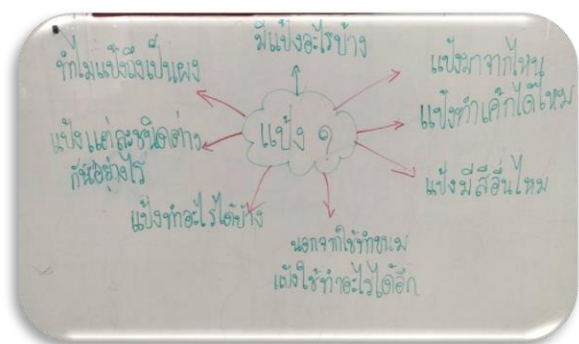 มีแป้งอะไรบ้าง
ทำไมแป้งถึงเป็นผง
แป้งมาจากไหน
แป้งทำเค้กได้ไหม
แป้ง ๆ
แป้งแต่ละชนิดต่าง
กันอย่างไร
แป้งมีสีอื่นไหม
แป้งทำอะไรได้บ้าง
นอกจากใช้ทำขนม
แป้งใช้ทำอะไรได้อีก